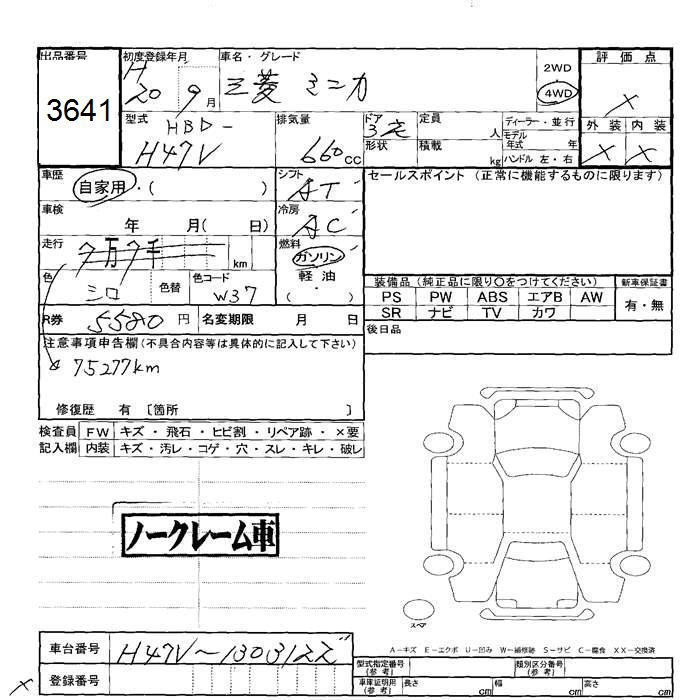 出品番号
3641
初度登録年月
H
20 9月
車名・グレード
三菱 ミニカ
2WD
4WD
評価点
×
外装 内装
× ×
型式
HBD-
H47V
排気量
660cc
ドア
形状
3ドア
定員
人
積載
kg
ディーラー・並行
モデル
年式 年
ハンドル 左・右
車歴
自家用・( )
シフト
AT
車検
年 月( 日)
冷房
AC
走行
7万7千
km
燃料
ガソリン・
軽油
( )
色
シロ
色替
色コード
W37
R券
5580円
名変期限 月 日
セールスポイント (正常に機能するものに限ります)
装備品(純正品に限り○をつけてください)
新車保証書
PS PW ABS エアB AW
SR ナビ TV カワ
有・無
後日品
注意事項申告欄(不具合内容等は具体的に記入して下さい)
75277km
修復歴 有 〔箇所 〕
検査員
記入欄
FW キズ・飛石・ヒビ割・リペア跡・×要
内装 キズ・汚レ・コゲ・穴・スレ・キレ・破レ
ノークレーム車
スペア
A-キズ E-エクボ U-凹み W-補修跡 S-サビ C-腐食 XX-交換済
車台番号
H47V~1303122
登録番号
×
型式指定番号
(参考)
類別区分番号
(参考)
車庫証明用
(参考)
長さ cm 幅 cm 高さ cm